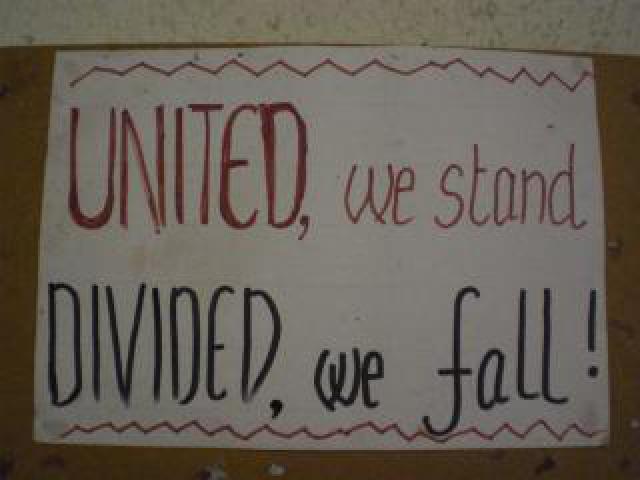 UNITED, we stand
DIVIDED, we fall!